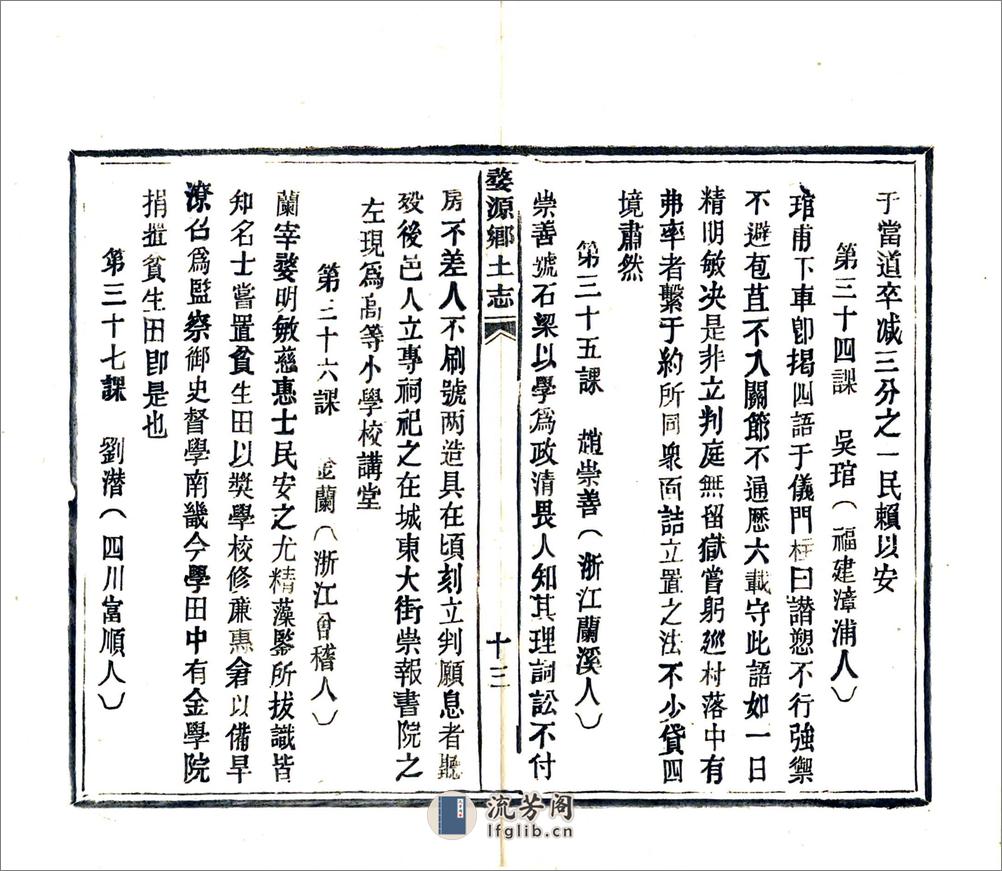 于當道卒减三分之一民賴以安
第三十四課 吳琯(福建漳浦人)
琯甫下車卽揭四語于儀門柱曰譖愬不行強禦
不避苞苴不入關節不通歷六載守此語如一日
精明敏决是非立判庭無留獄嘗躬廵村落中有
弗率者繫于約所同衆面詰立置之法不少貸四
境肅然
第三十五課 趙崇善(浙江蘭溪人)
崇善號石梁以學爲政清畏人知其理詞訟不付
婺源鄉土志
十三
房不差人不刷號两造具在頃刻立判願息者聽
殁後邑人立專祠祀之在城東大街崇報書院之
左現爲高等小學校講堂
第三十六課 金蘭(浙江會稽人)
蘭宰婺明敏慈惠士民安之尤精藻鑒所拔識皆
知名士嘗置貧生田以奬學校修廉惠倉以備旱
潦召爲監察御史督學南畿今學田中有金學院
捐置貧生田卽是也
第三十七課 劉潛(四川富順人)
流芳阁
lfglib.cn